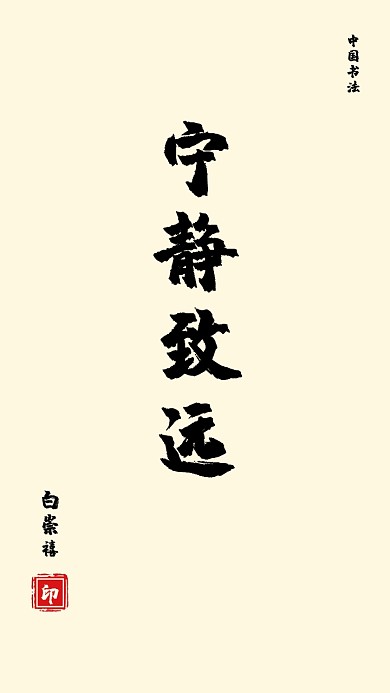 中国书法
宁静致远
白崇禧
印